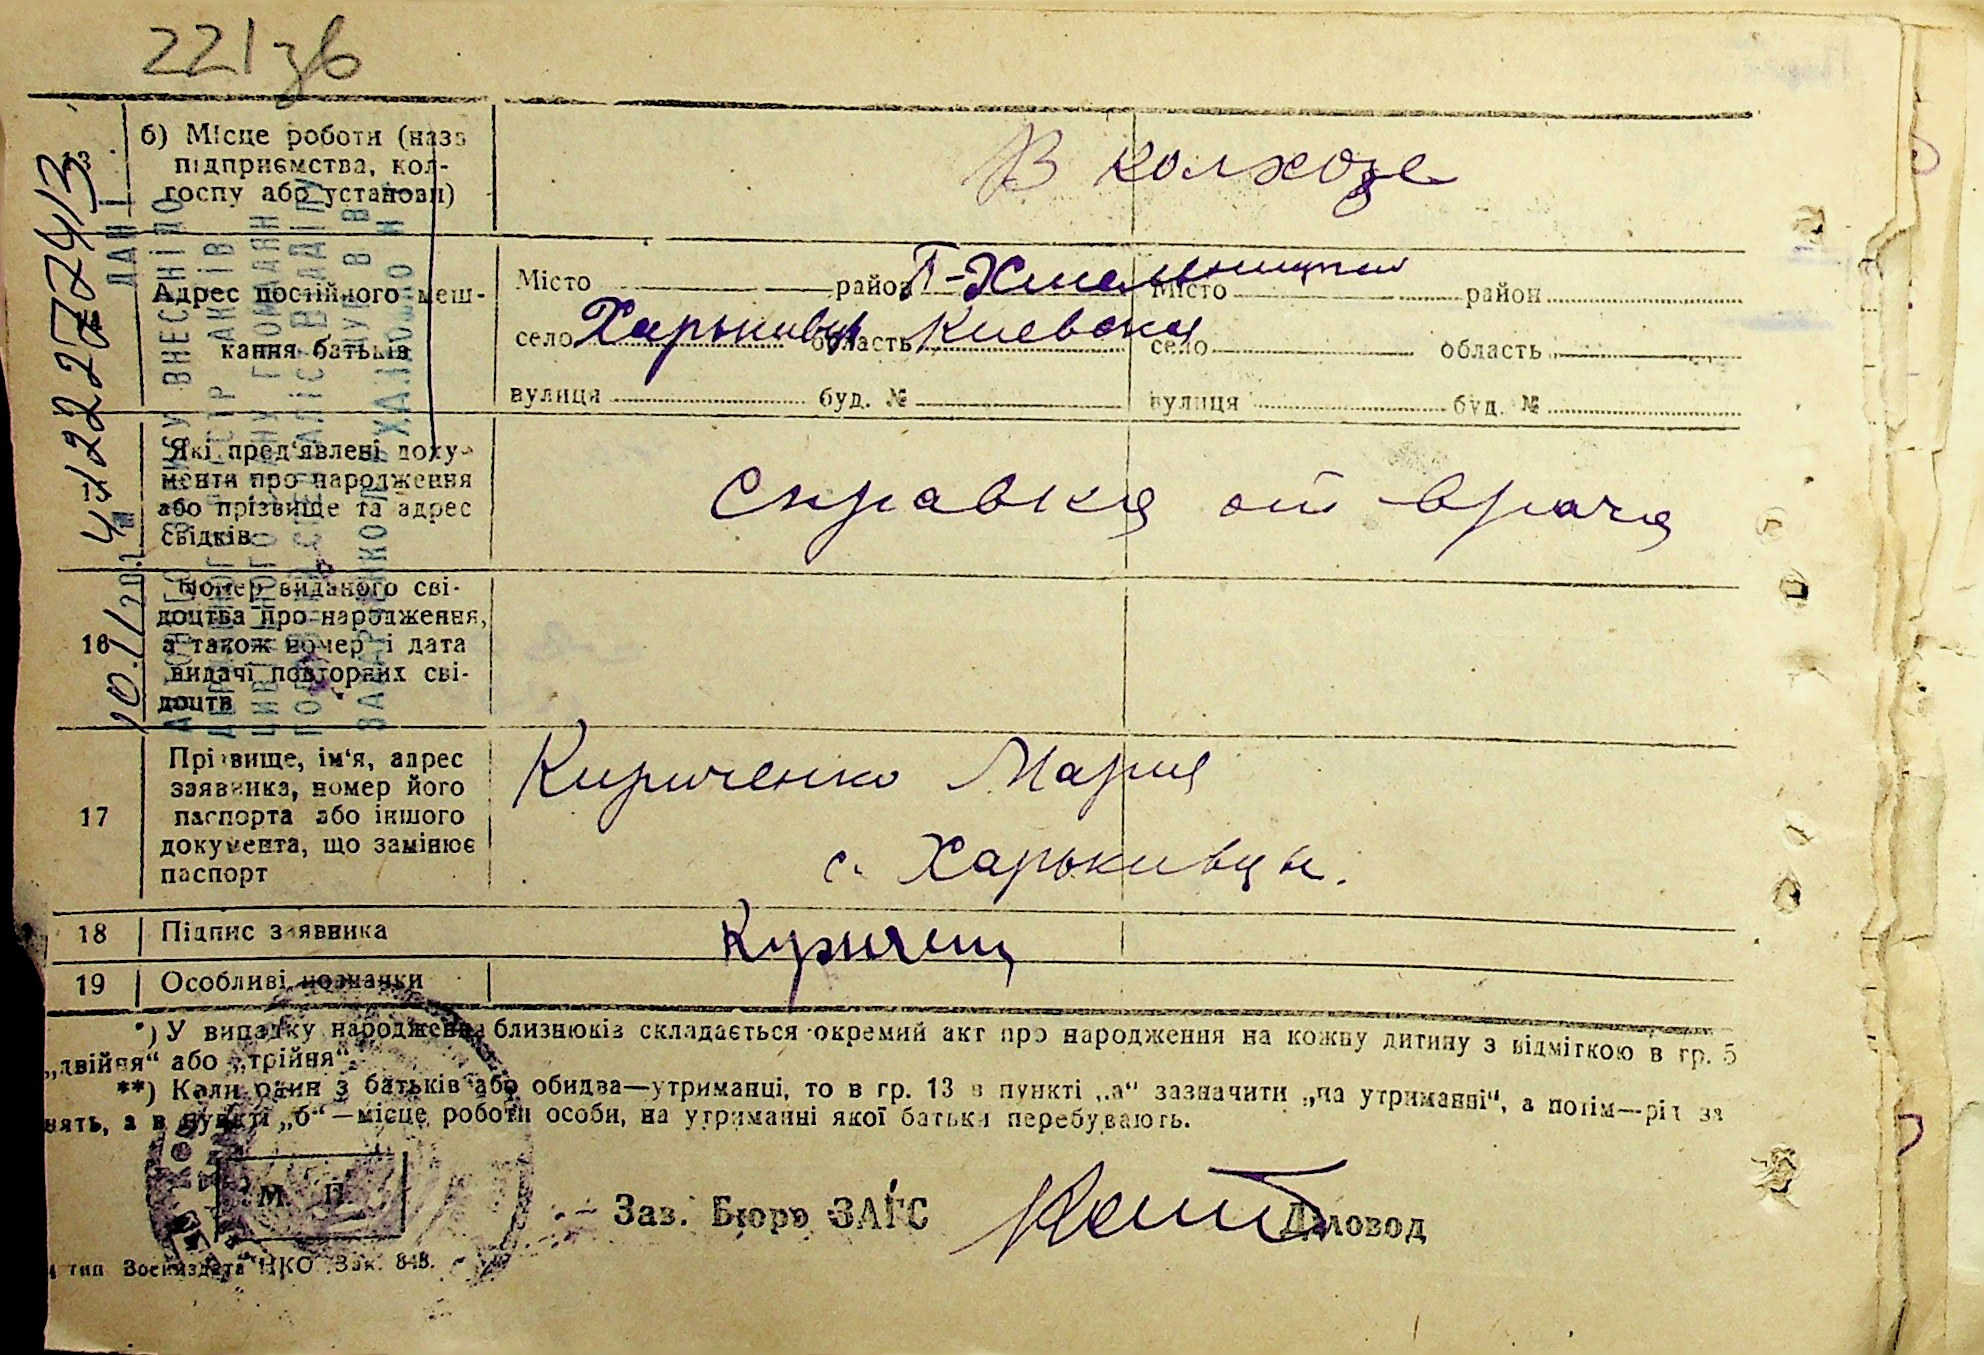 221зв
б) Місце роботи (назв
підприємства, кол-
госпу або установи)
В колхозе
Адрес постійного меш-
кання батьків
Місто район П-Хмельницкий Місто район
село Харьковцы область Киевская село область
вулиця буд. № вулиця буд. №
Які пред'явлені доку-
менти про народження
або прізвище та адрес
свідків
Справка от врача
16
Номер виданого сві-
доцтва про народження,
а також номер і дата
видачі повторних сві-
доцтв
17
Прізвище, ім'я, адрес
заявника, номер його
паспорта або іншого
документа, що замінює
паспорт
Кириченко Мария
с. Харькивци.
18 Підпис заявника
19 Особливі позначки
*) У випадку народження близнюків складається окремий акт про народження на кожну дитину з відміткою в гр. 5
„двійня“ або „трійня“.
**) Коли один з батьків або обидва—утриманці, то в гр. 13 в пункті „а“ зазначити „на утриманні“, а потім—рід за
нять, а в пункті „б“—місце роботи особи, на утриманні якої батьки перебувають.
М П
Зав. Бюро ЗАГС Діловод
тип Воениздата НКО Зак. 848.